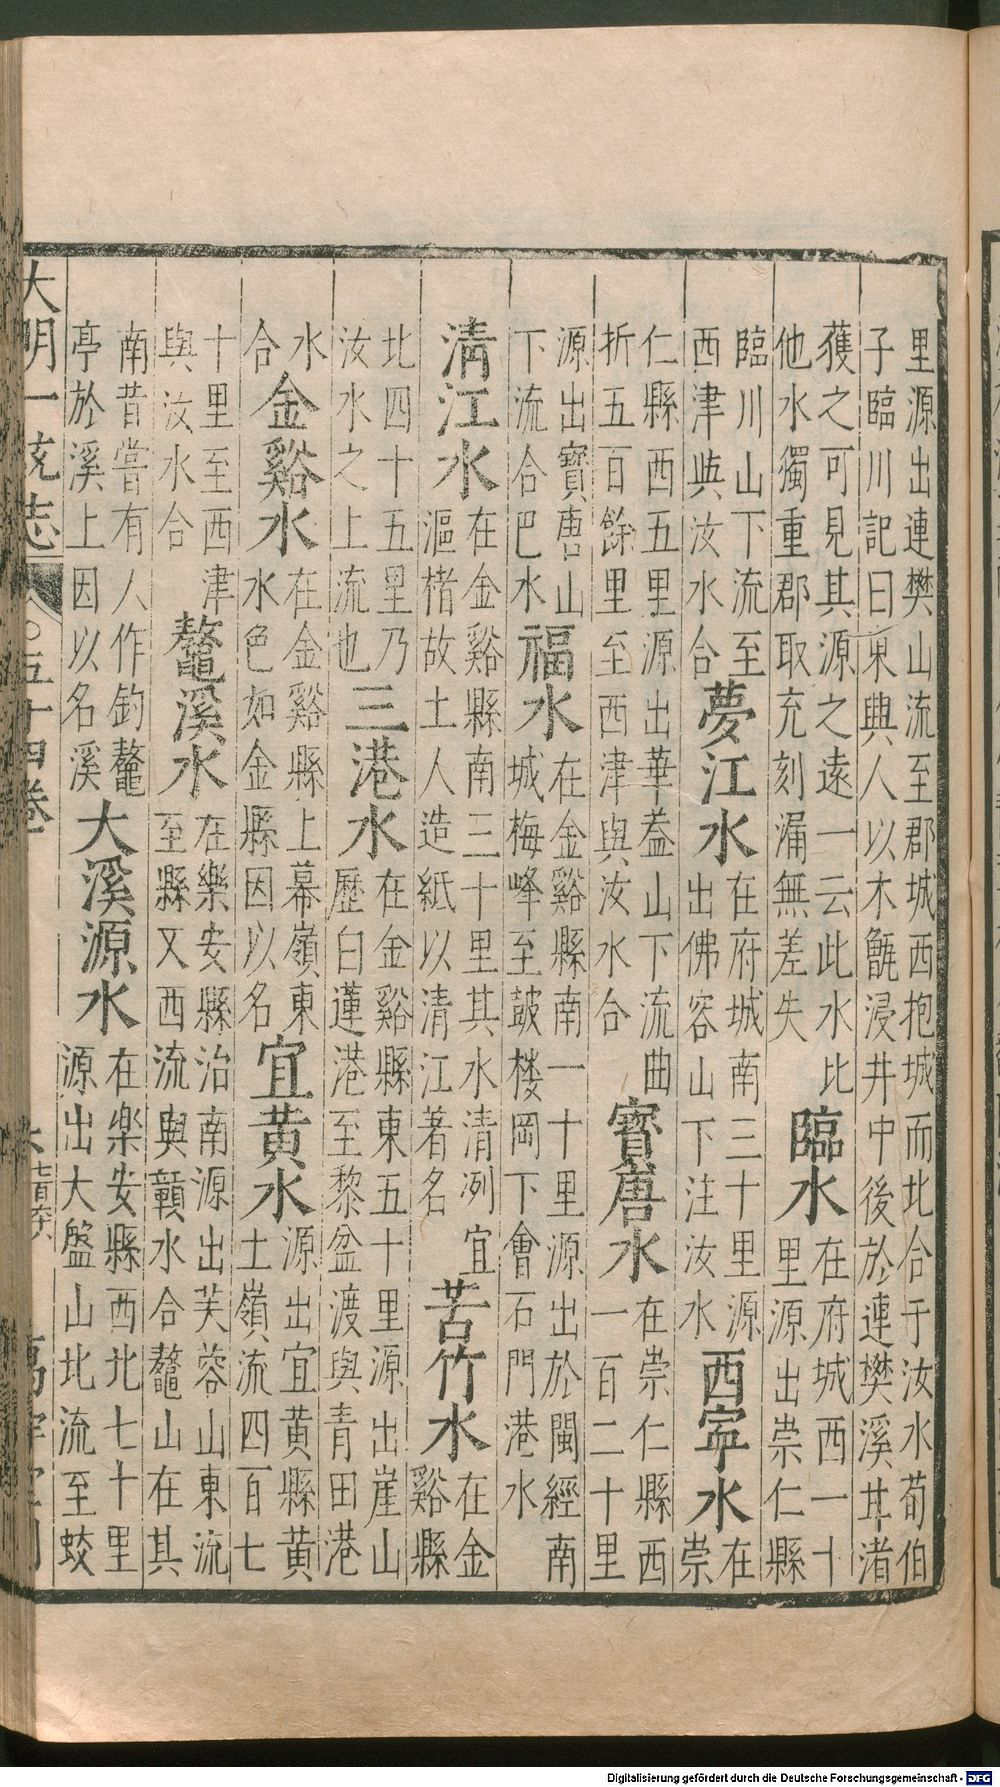 里源出連樊山流至郡城西抱城而北合于汝水荀伯
子臨川記曰東興人以木甑浸井中後於連樊溪其渚
獲之可見其源之遠一云此水比
他水獨重郡取充刻漏無差失
臨水
在府城西一十
里源出崇仁縣
臨川山下流至
西津與汝水合
夢江水
在府城南三十里源
出佛容山下注汝水
西寧水
在
崇
仁縣西五里源出華葢山下流曲
折五百餘里至西津與汝水合
寳唐水
在崇仁縣西
一百二十里
源出寳唐山
下流合巴水
福水
在金谿縣南一十里源出於閩經南
城梅峰至皷楼岡下會石門港水
清江水
在金谿縣南三十里其水清洌宜
漚楮故土人造紙以清江著名
苦竹水
在金
谿縣
北四十五里乃
汝水之上流也
三港水
在金谿縣東五十里源出崖山
歷白蓮港至黎盆渡與青田港
水
合
金谿水
在金谿縣上幕嶺東
水色如金縣因以名
宜黄水
源出宜黄縣黄
土嶺流四百七
十里至西津
與汝水合
鼇溪水
在樂安縣治南源出芙蓉山東流
至縣又西流與贛水合鼇山在其
南昔嘗有人作釣鼇
亭於溪上因以名溪
大溪源水
在楽安縣西北七十里
源出大盤山北流至蛟
大明一统志
五十四卷
Digitalisierung gefördert durch die Deutsche Forschungsgemeinschaft - DFG